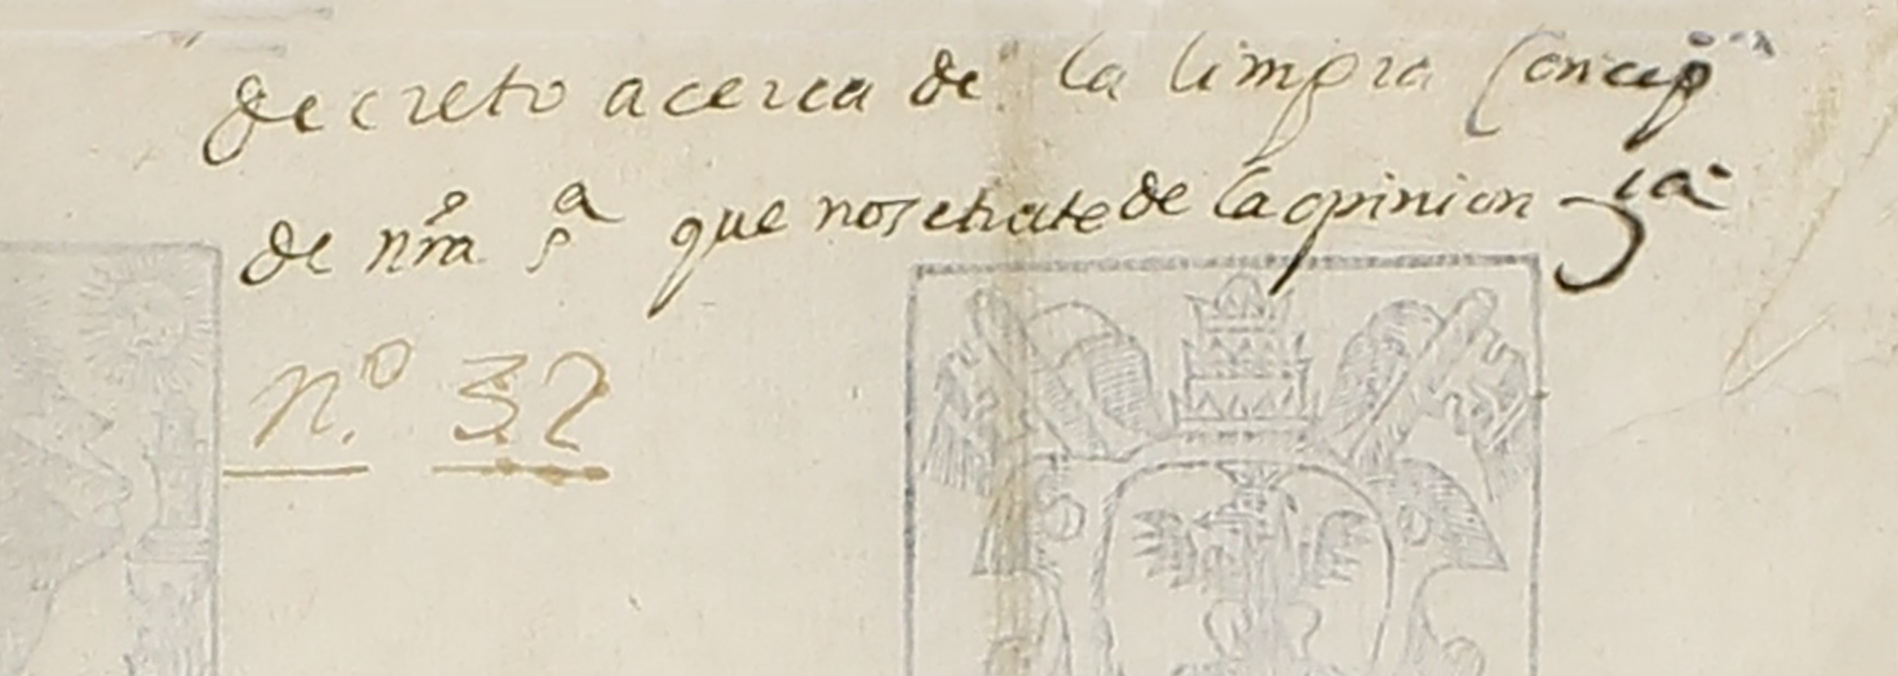 decreto acerca de la limpia Concepon
de nra Sa que nosetrate de la opinion
n.o 32